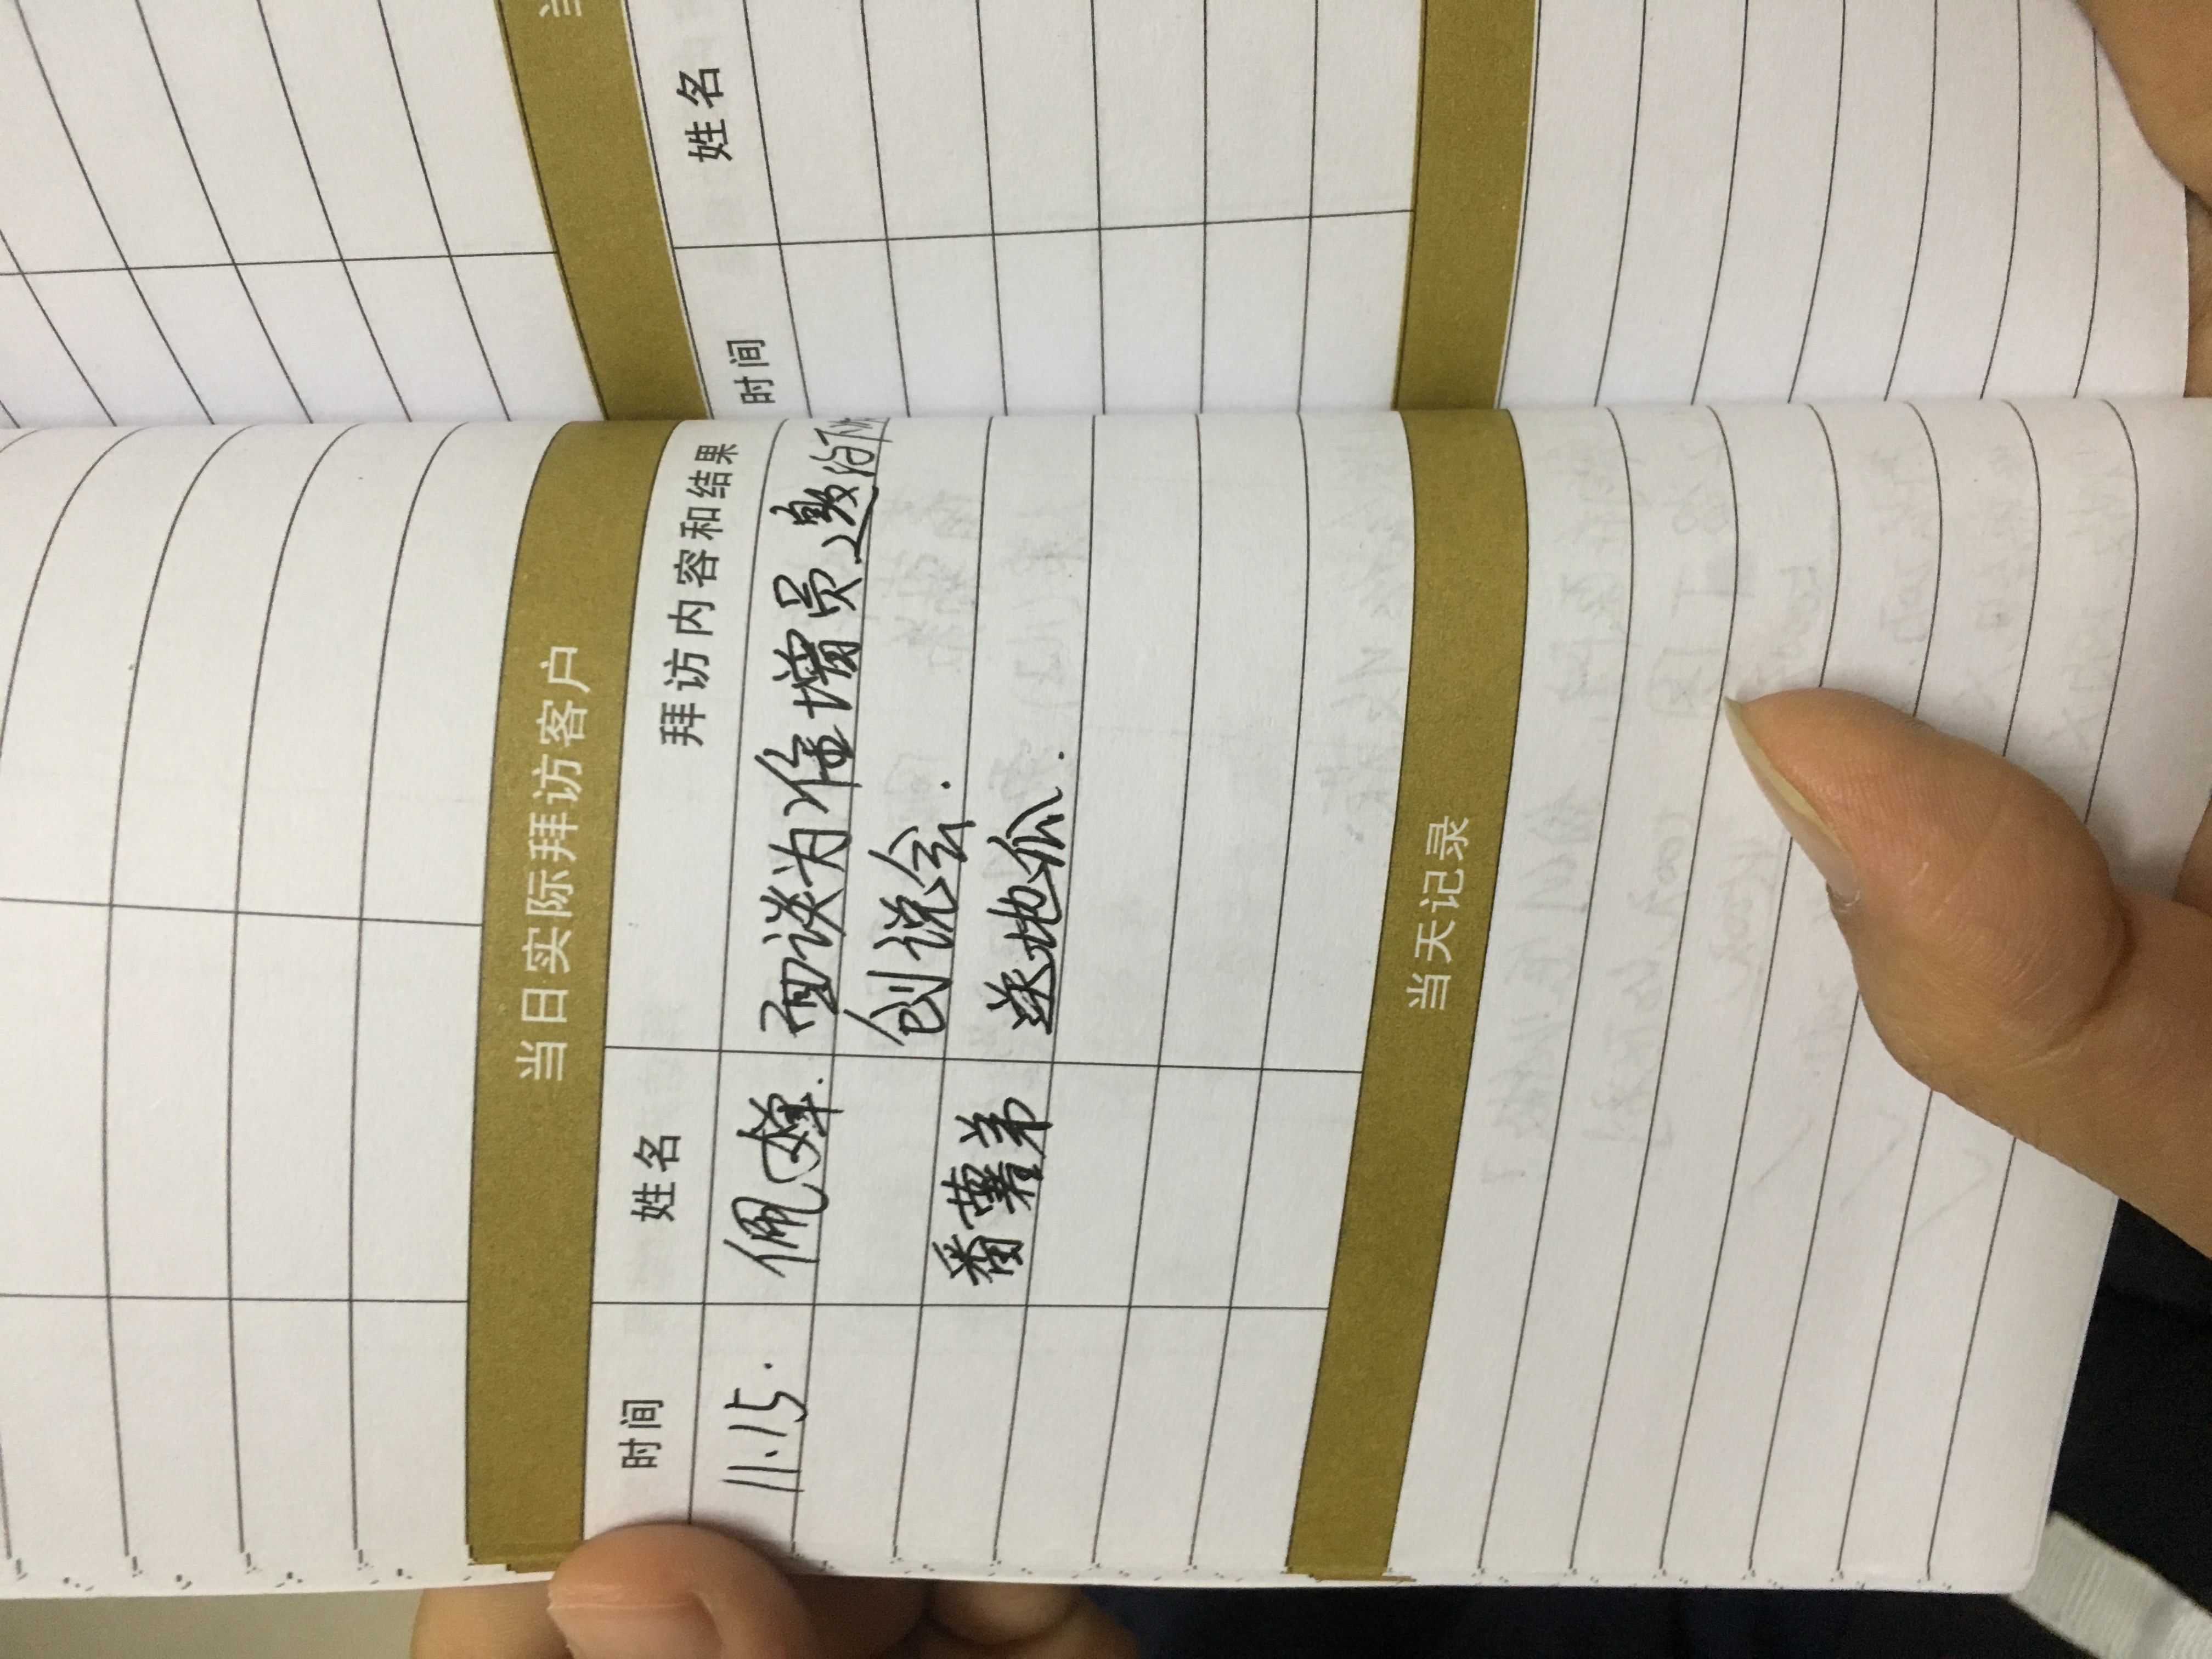 当日实际拜访客户
时间 姓名 拜访内容和结果
11.15. 佩婵. 面谈为准增员邀约下
创说会.
番薯弟 送地瓜.
当天记录
当
时间 姓名